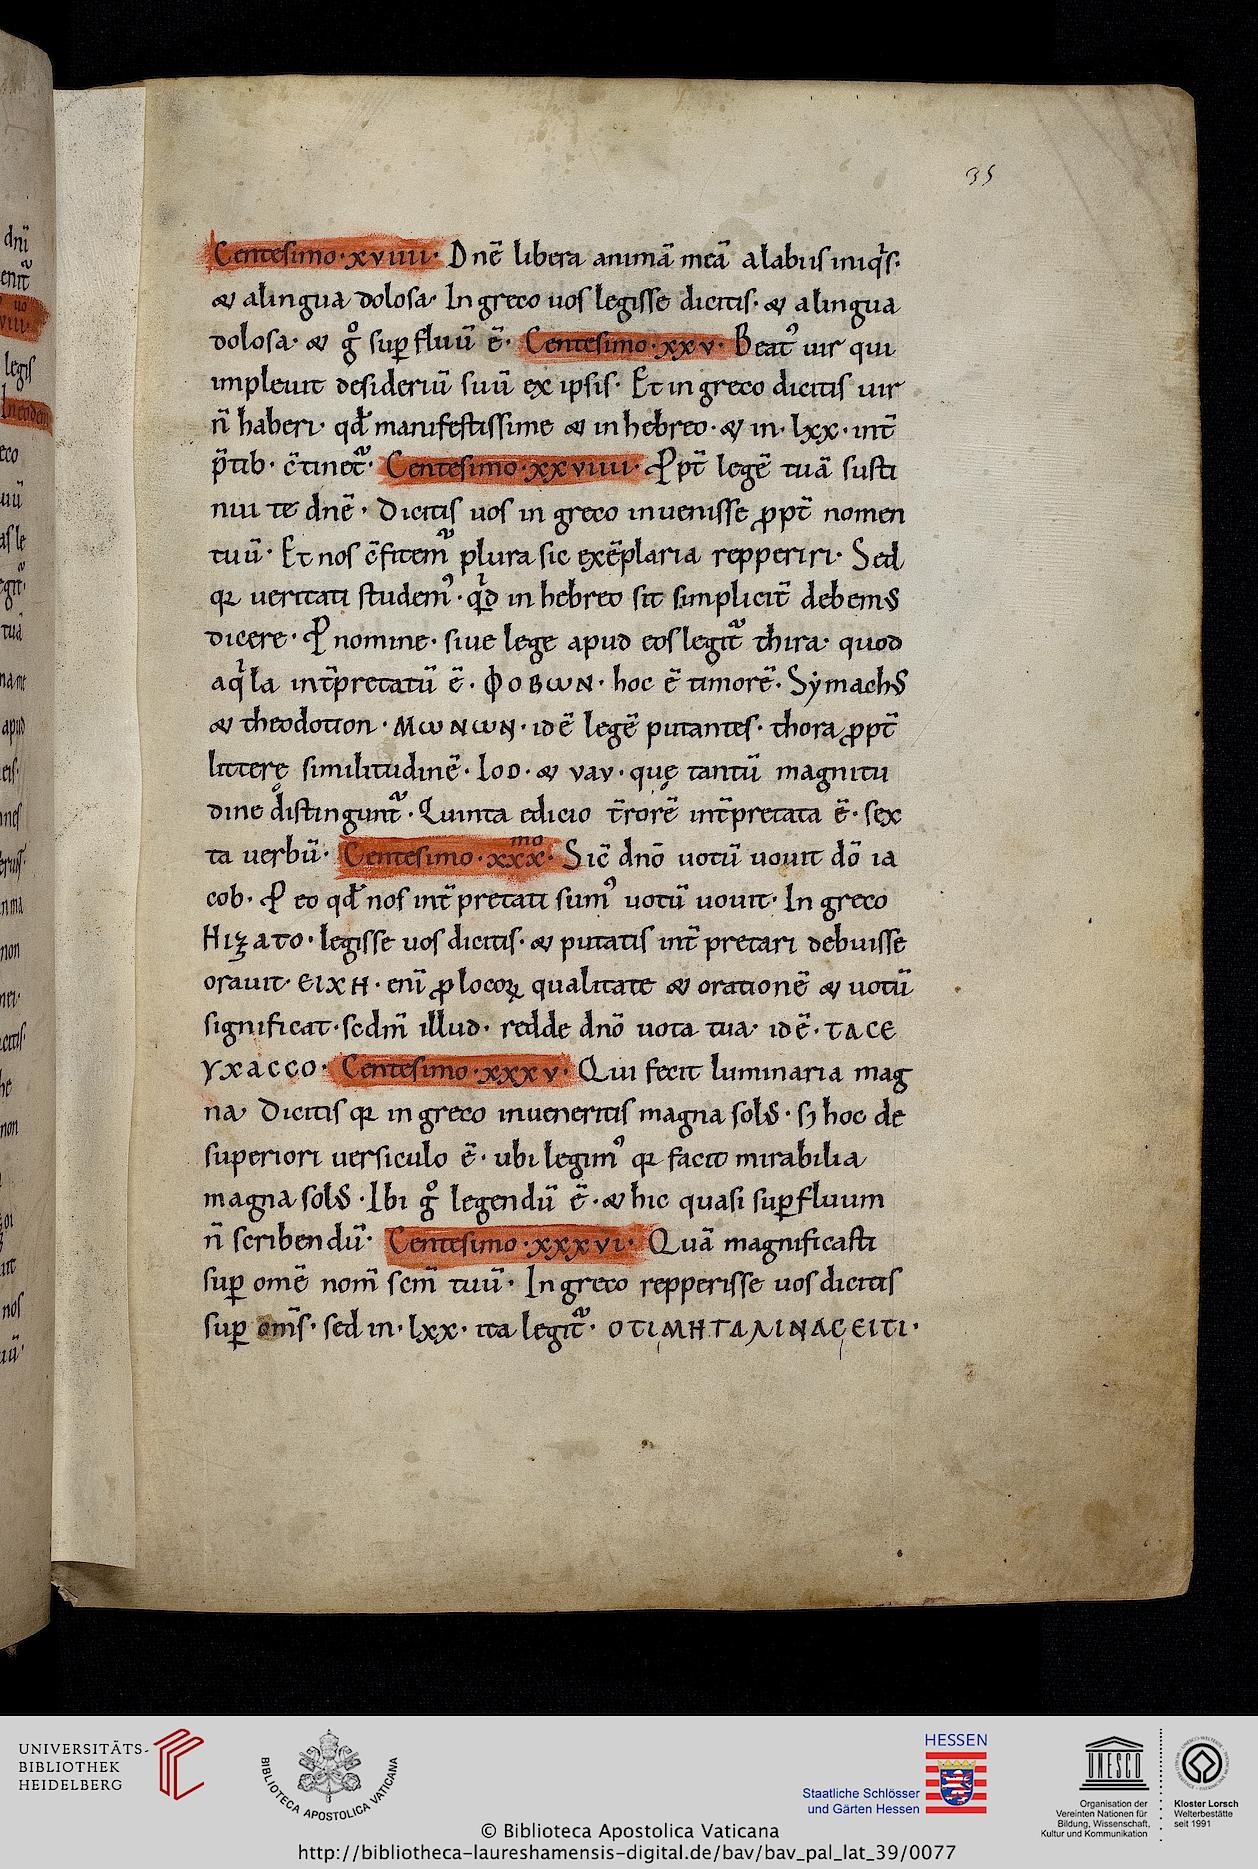 35
Centesimo·xviiii· Dnē libera animā meā alabiis iniqis·
& alingua dolosa· In greco uos legisse dicitis· & alingua
dolosa· & gͦ suꝑfluū ē· Centesimo·xxv· Beatꝰ uir qui
impleuit desideriū suū ex ipsis· Et in greco dicitis uir
n̄ haberi· qđ manifestissime & in hebreo· & in· lxx· int̄
p̄tib· c̄tinet᷑· Centesimo·xxviiii· Ꝓpt̄ legē tuā susti
nui te dnē· Dicitis uos in greco inuenisse ꝓpt̄ nomen
tuū· Et nos c̄fitem᷑ plura sic exēplaria repperiri· Sed
qꝛ ueritati studemꝰ· qͥd in hebreo sit simplicit̄ debemꝰ
dicere· Ꝓ nomine· siue lege apud eos legit᷑ thira· quod
aqͥla int̄pretatū ē· ΦΟΒωΝ· hoc ē timorē· Sẏmachꝰ
& theodotion· ΜωΝωΝ· idē legē putantes· thora ꝓpt̄
litterę similitudinē· Iod· & vav· quę tantū magnitu
dine distingunt᷑· Quinta edicio t̄rorē int̄pretata ē· sex
ta uerbū· Centesimo·xxxmo· Sic̄ dnō uotū uouit dō ia
cob· Ꝓ eo qđ nos int̄pretati sumꝰ uotū uouit· In greco
ΗΙξΑΤΟ· legisse uos dicitis· & putatis int̄pretari debuisse
orauit· ЄΙΧΗ· enī ꝓ locoꝝ qualitate & orationē & uotū
significat· scdm̄ illud· redde dnō uota tua· idē· ΤΑCЄ
ΥΧΑCCΟ· Centesimo·xxxv· Qui fecit luminaria mag
na· Dicitis qꝛ in greco inueneritis magna solꝰ· sꝫ hoc de
superiori uersiculo ē· ubi legimꝰ qꝛ facit mirabilia
magna solꝰ· Ibi gͦ legendū ē· & hic quasi suꝑfluum
n̄ scribendū· Centesimo·xxxvi· Quā magnificasti
suꝑ omē nom̄ scm̄ tuū· In greco repperisse uos dicitis
suꝑ om̄s· sed in· lxx· ita legit᷑· ΟΤΙΜΗΤΑΛΙΝΑCЄΙΤΙ·
UNIVERSITÄTS-
BIBLIOTHEK
HEIDELBERG
BIBLIOTECA APOSTOLICA VATICANA
HESSEN
Staatliche Schlösser
und Gärten Hessen
UNESCO
Organisation der
Vereinten Nationen für
Bildung, Wissenschaft,
Kultur und Kommunikation
Kloster Lorsch
Welterbestätte
seit 1991
© Biblioteca Apostolica Vaticana
http://bibliotheca-laureshamensis-digital.de/bav/bav_pal_lat_39/0077